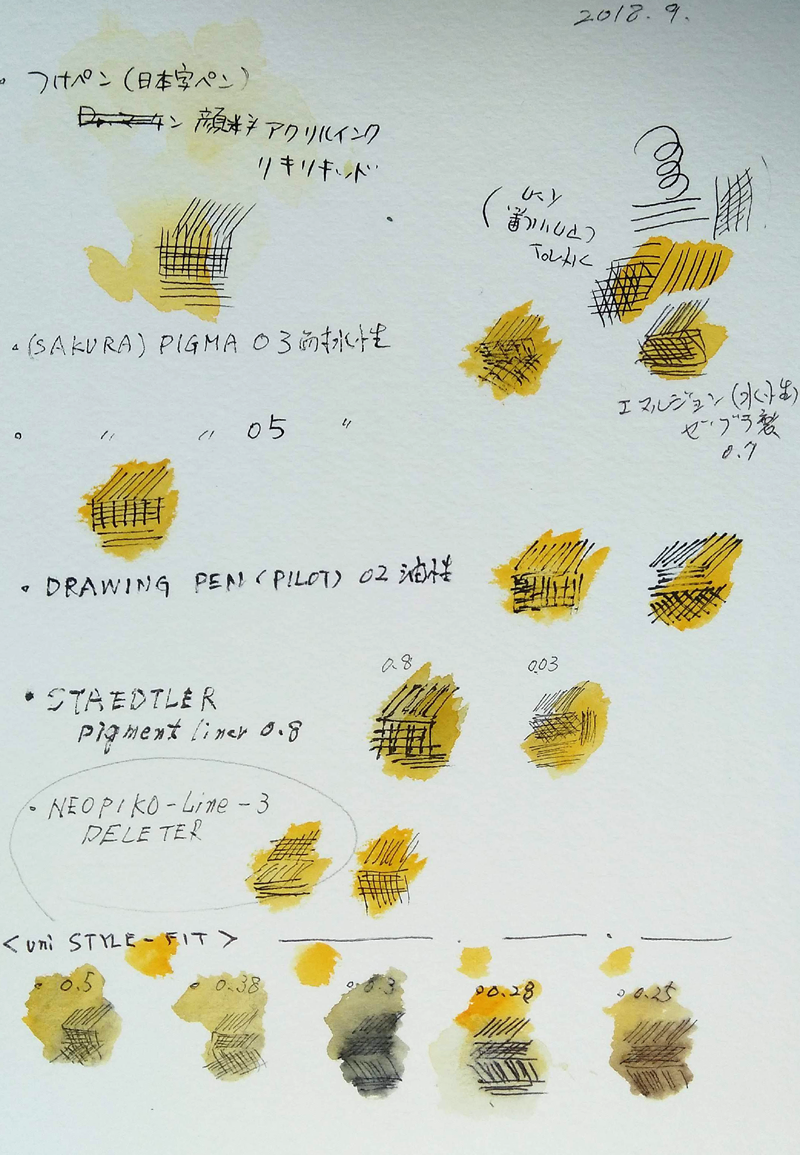 2018.9.
・つけペン(日本字ペン)
顔料アクリルインク
リキリキッド
・(SAKURA) PIGMA 03 耐水性
エマルジョン(水性)
ゼブラ製
0.7
・ 〃 〃 05 〃
・DRAWING PEN (PILOT) 02 油性
0.8 0.03
・STAEDTLER
pigment liner 0.8
・NEOPIKO-Line-3
DELETER
<uni STYLE-FIT>
・0.5 ・0.38 ・0.3 ・0.28 ・0.25